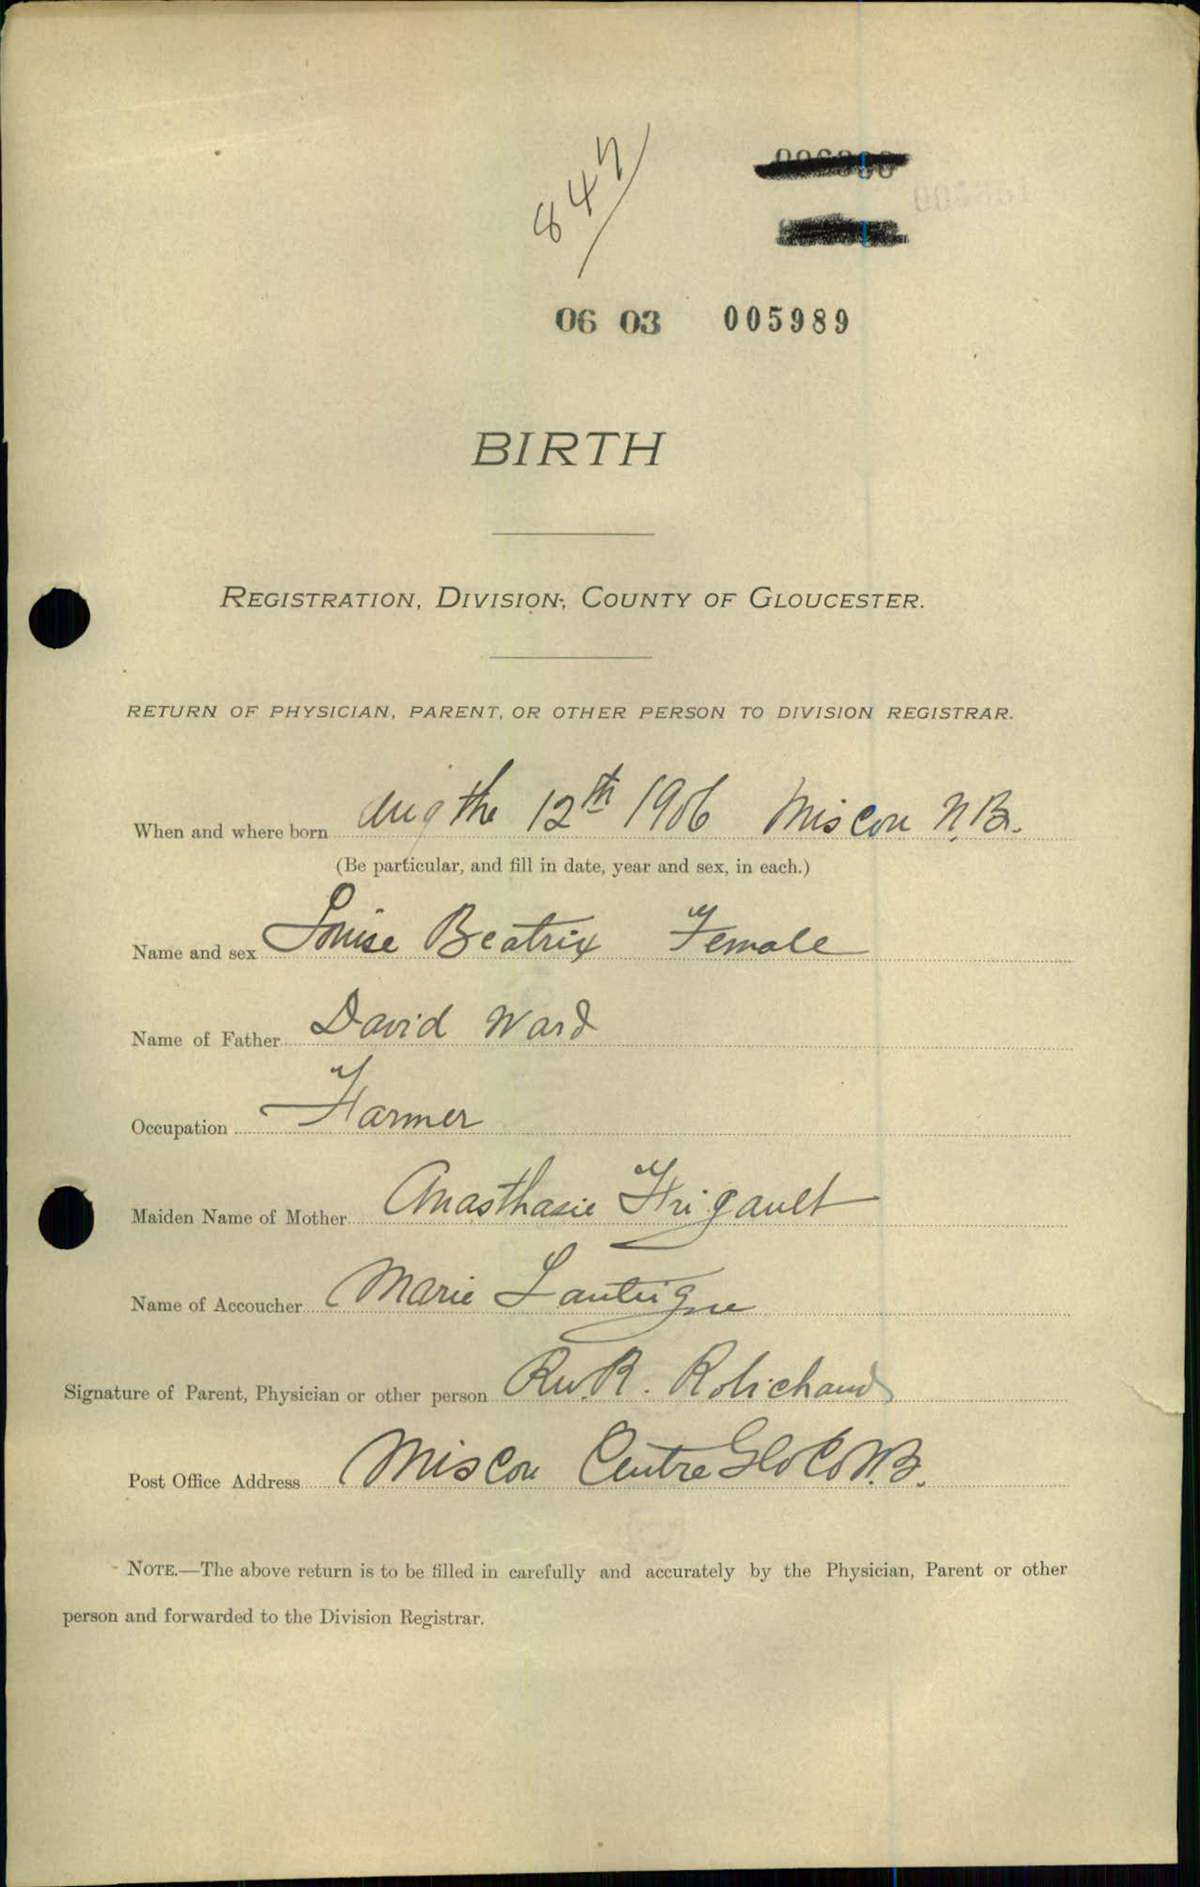 847
06 03 005989
BIRTH
REGISTRATION, DIVISION, COUNTY OF GLOUCESTER.
RETURN OF PHYSICIAN, PARENT, OR OTHER PERSON TO DIVISION REGISTRAR.
When and where born Aug the 12th 1906 Miscou N.B.
(Be particular, and fill in date, year and sex, in each.)
Name and sex Louise Beatrix Female
Name of Father David Ward
Occupation Farmer
Maiden Name of Mother Anasthasie Frigault
Name of Accoucher Marie Lanteigne
Signature of Parent, Physician or other person Rev. R. Robichaud
Post Office Address Miscou Centre Glo Co N.B.
NOTE.—The above return is to be filled in carefully and accurately by the Physician, Parent or other
person and forwarded to the Division Registrar.